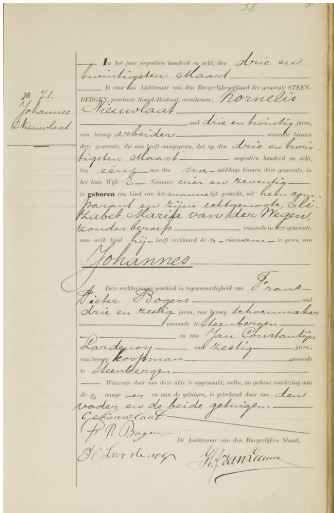 36
No 71.
Johannes
Nieuwlaat
In het jaar negentien honderd en acht, den drie en
twintigsten Maart
is voor ons Ambtenaar van den Burgerlijken Stand der gemeente STEEN-
BERGEN, provincie Noord-Brabant, verschenen: Kornelis
Nieuwlaat
oud drie en twintig jaren,
van beroep arbeider wonende binnen
deze gemeente, die ons heeft aangegeven, dat op den drie en twin-
tigsten Maart negentien honderd acht,
ten één ure des na middags binnen deze gemeente, in
het huis Wijk E Nummer vier en zeventig
is geboren een kind van het mannelijk geslacht, uit hem com-
parant en zijne echtgenoote, Eli-
zabet Maria van der Wegen,
zonder beroep
aan welk kind hij heeft verklaard de voornaam te geven van
Johannes
Deze verklaring is geschied in tegenwoordigheid van Frans
Pieter Bogers oud
drie en zestig jaren, van beroep schoenmaker
wonende te Steenbergen
en van Jan Constantijn
oud zestig jaren,
van beroep koopman wonende
te Steenbergen
Waarvan door ons deze akte is opgemaakt, welke, na gedane voorlezing aan
de aangever en aan de getuigen, is geteekend door ons, den
vader en de beide getuigen.
C Nieuwlaat
F. P. Bogers
De Ambtenaar van den Burgerlijken Stand,